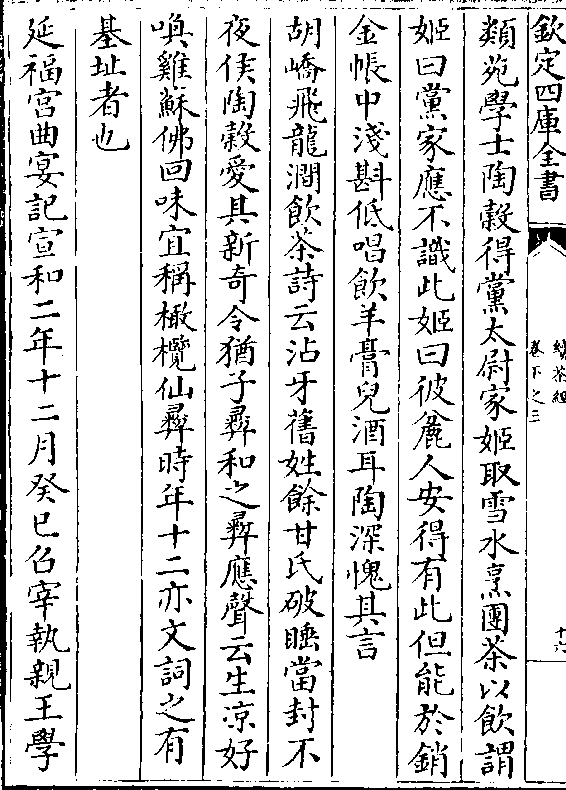 欽定四庫全書
續茶經
卷下之三
十六
類苑學士陶榖得黨太尉家姬取雪水烹團茶以飲謂
姬曰黨家應不識此姬曰彼麄人安得有此但能於銷
金帳中淺斟低唱飲羊膏兒酒耳陶深愧其言
胡嶠飛龍澗飲茶詩云沾牙舊姓餘甘氏破睡當封不
夜侯陶榖愛其新奇令猶子彛和之彛應聲云生凉好
喚雞蘇佛回味宜稱橄欖仙彛時年十二亦文詞之有
基址者也
延福宫曲宴記宣和二年十二月癸巳召宰執親王學